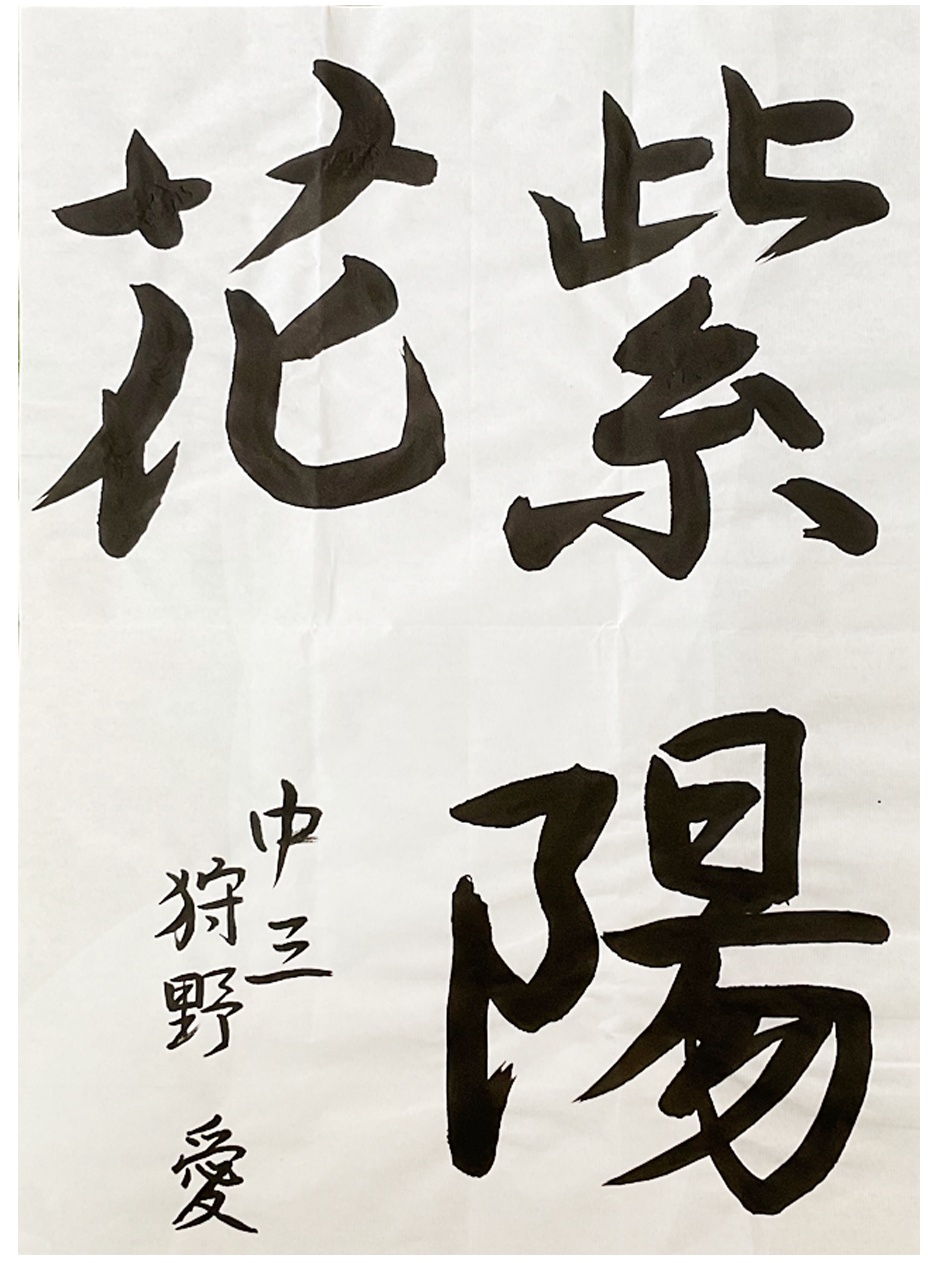 紫陽
花
中三
狩野 愛